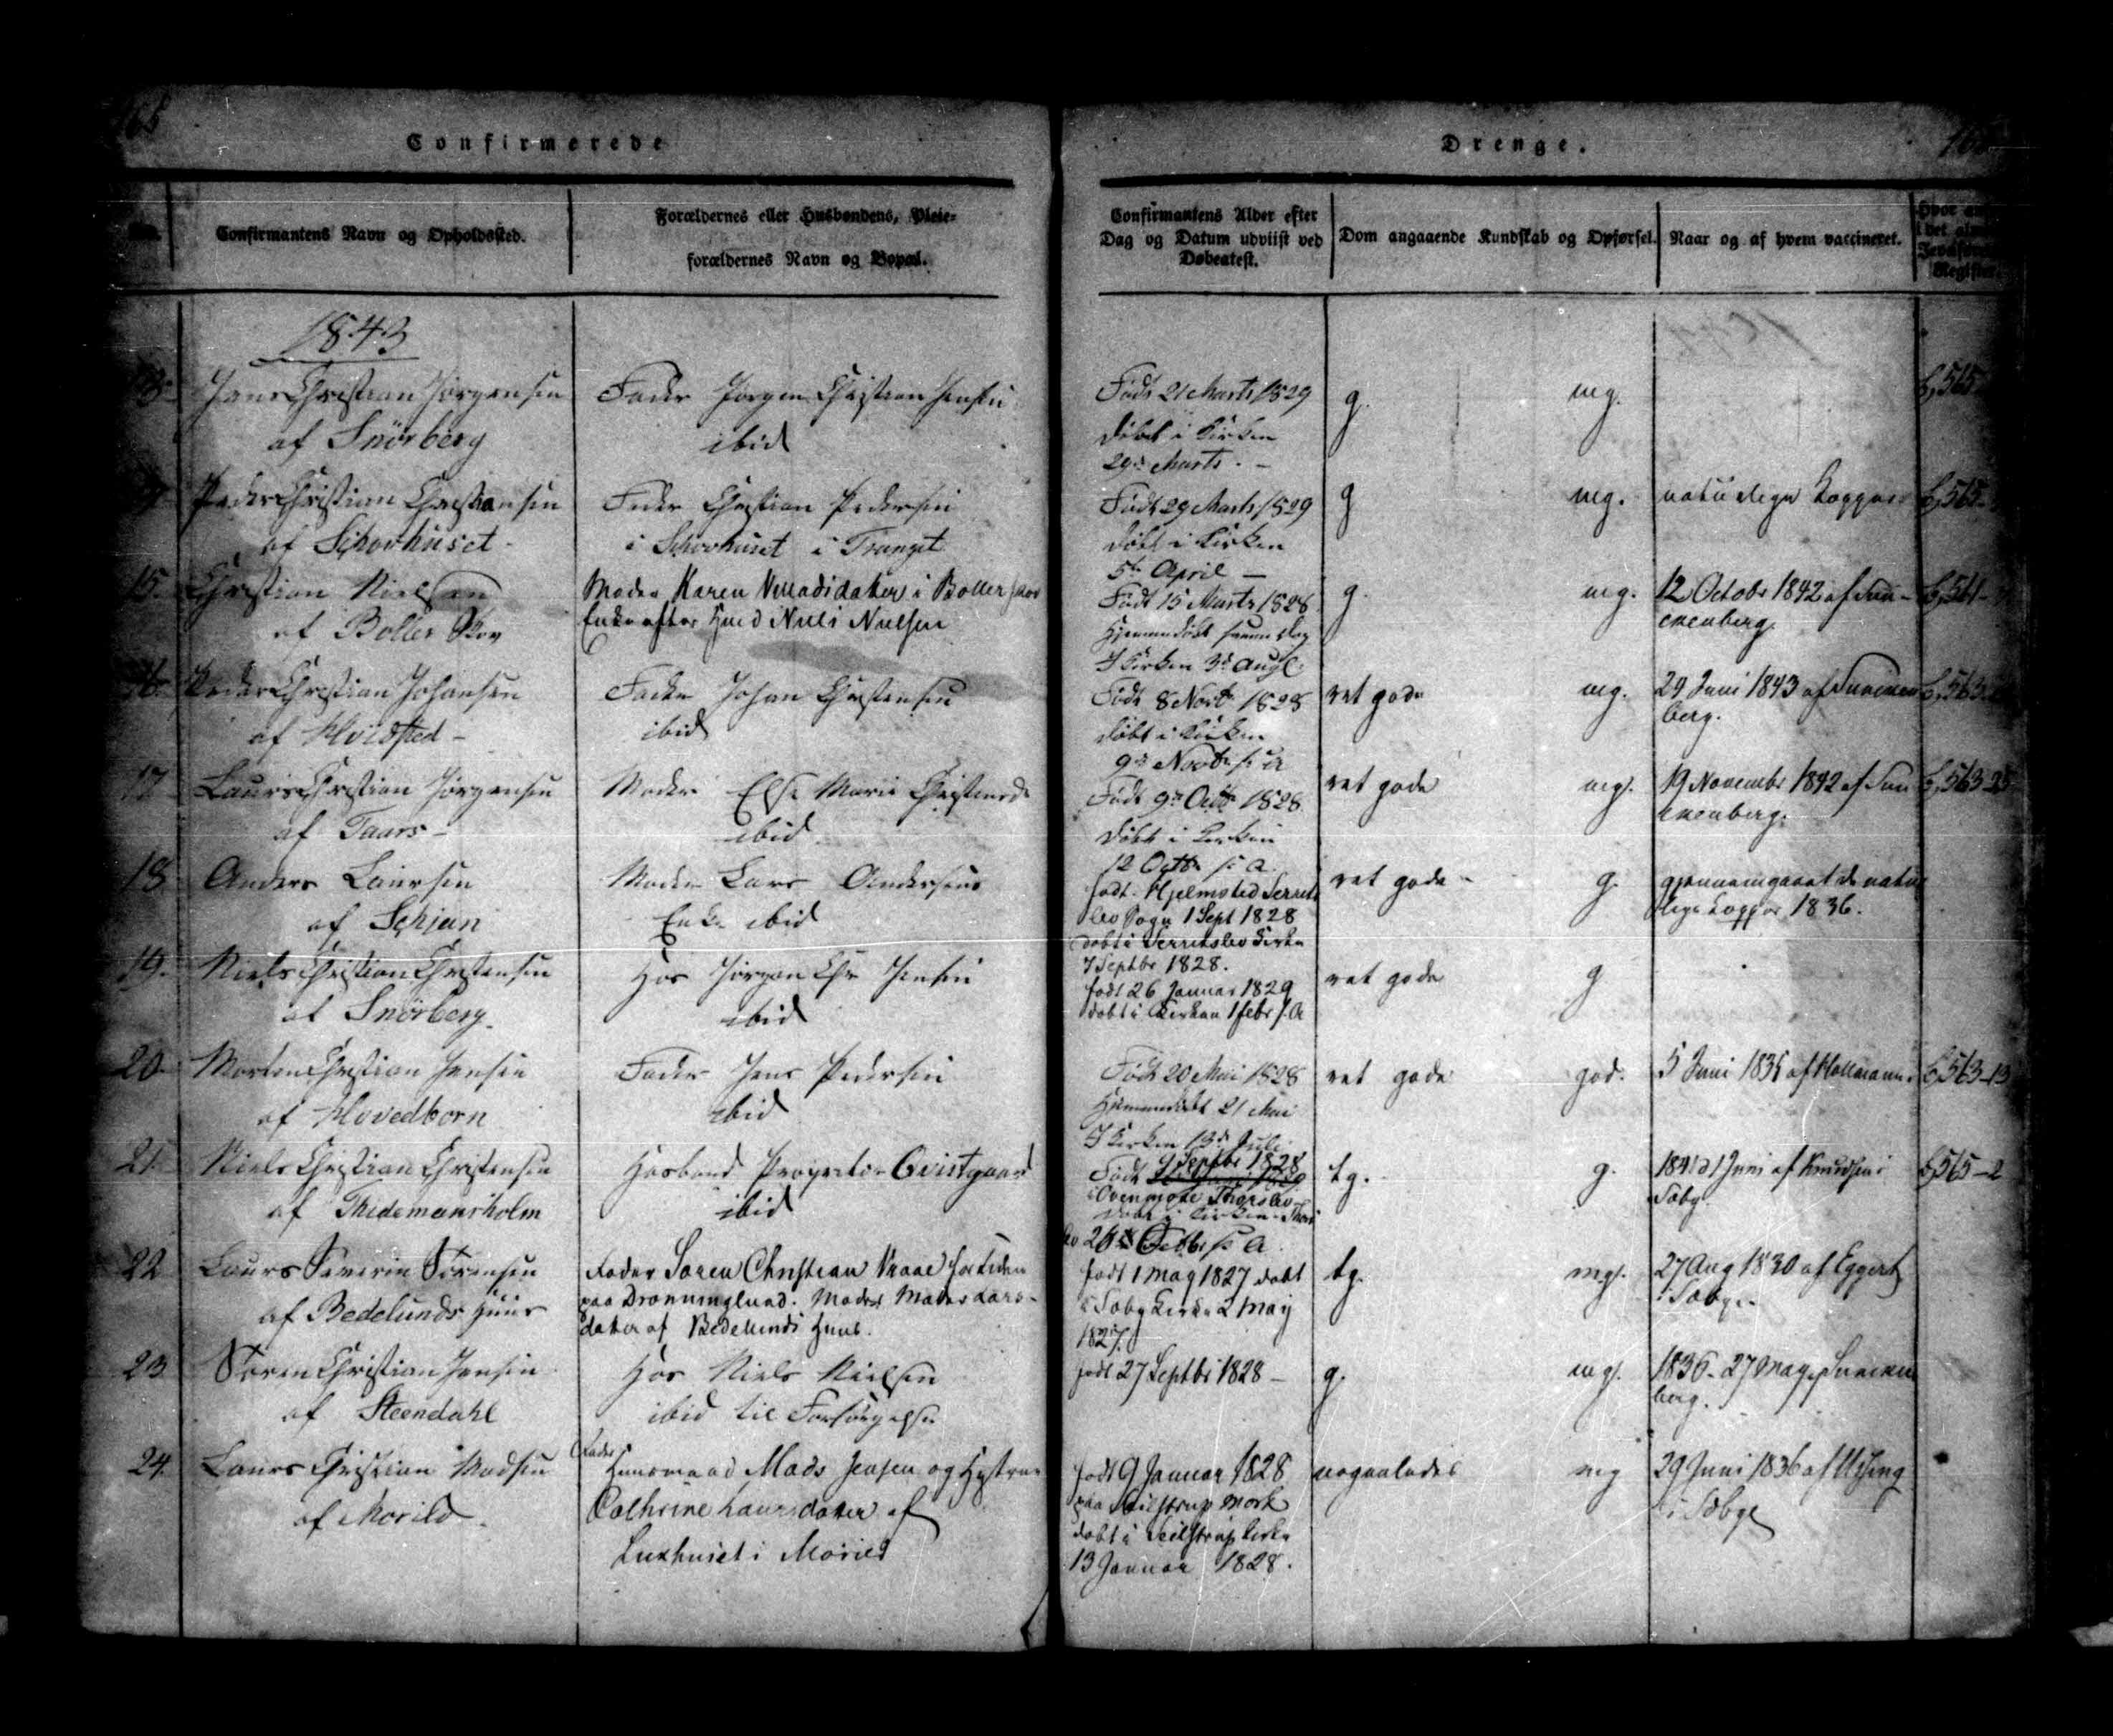 Confirmerede
Drenge.
Confirmantens Navn og Opholdssted.
Forældernes eller Husbondens, Pleie-
forældernes Navn og Bopæl.
Confirmantens Alder efter
Dag og Datum udviist ved
Døbeattest.
Dom angaaende Kundskab og Opførsel.
Naar og af hvem vaccineret.
1843
Jens Christian Jörgensen
af Snörberg
Fader Jörgen Christian Jensen
ibid
Født 21 Marts 1829
døbt i Kirken
29de Marts. -
g.
mg.
Peder Christian Christiansen
af Schovhuset -
Fader Christian Pedersen
i Schovhuset i Tranget
Født 29 Marts 1829
døbt i Kirken
5te April -
g
mg.
naturlige Kopper
15.
Christian Nielsen
af Boller Skov
Moder Karen Villadsdatter i Boller Skov
Enke efter Niels Nielsen
Født 15 Marts 1828
Hjemmedøbt samme Dag
I Kirken 3de Aug
g.
mg.
12 Octobr 1842 af
Peder Christian Johansen
af Hvidsted -
Fader Johan Christensen
ibid
Født 8 Novbr 1828
døbt i Kirken
9de Novbr s: A
ret gode
mg.
29 Juni 1843 af
berg.
17
Laurs Christian Jörgensen
af Taars -
Moder Else Marie Christensd.
ibid
Født 9de Octbr 1828
døbt i Kirken
12 Octbr s: A.
ret gode
mg.
19 Novembr 1842 af
18
Anders Laursen
af Schjen
Moder Lars Andersens
Enke ibid
født i Hjelmsted Serrits
lev Sogn 1 Sept 1828
døbt i Serritslev Kirke
7 Septbr 1828.
ret gode -
g.
gjennemgaaet de natur
lige Kopper 1836.
19.
Niels Christian Christensen
af Snörberg.
Hos Jörgen Chr Jensen
ibid
født 26 Januar 1829
døbt i Kirken 1 febr s. A
ret gode
g
20
Morten Christian Jensen
af Hovedborn
Fader Jens Pedersen
ibid
Født 20 Mai 1828
Hjemmedøbt 21 Mai
I Kirken 13de Juli
ret gode
god.
5 Juni 1835 af
L, 563-13
21.
Niels Christian Christensen
af Thidemansholm
Husbond Proprietær Qvistgaard
ibid
9 Septbr 1828
Født
døbt i Kirken
tg.
g.
1841 d 1 Juni af Knudsen i
Sæby
L, 565-2
22
Laurs Severin Sörensen
af Bedelunds Huus
Fader Søren Christian Vraae fortiden
paa Dronninglund. Moder Maren Lars-
datter af Bedelunds Huus.
født 1 May 1827 døbt
i Sæby Kirke 2 May
1827.
tg.
mg.
27 Aug 1830 af Eggert
i Sæbye.
23
Sören Christian Jensen
af Steendahl
Hos Niels Nielsen
ibid til Forsörgelse
født 27 Septbr 1828 -
g.
mg.
1836 - 27 May af
berg.
24.
Laurs Christian Madsen
af Morild.
Fader
Huusmand Mads Jensen og Hustrue
Cathrine Laursdatter af
Luxhuset i Morild
født 9 Januar 1828
paa Seilstrup Mark
døbt i Seilstrup Kirke
13 Januar 1828.
nogenledes
mg
29 Juni 1836 af
i Sæbye